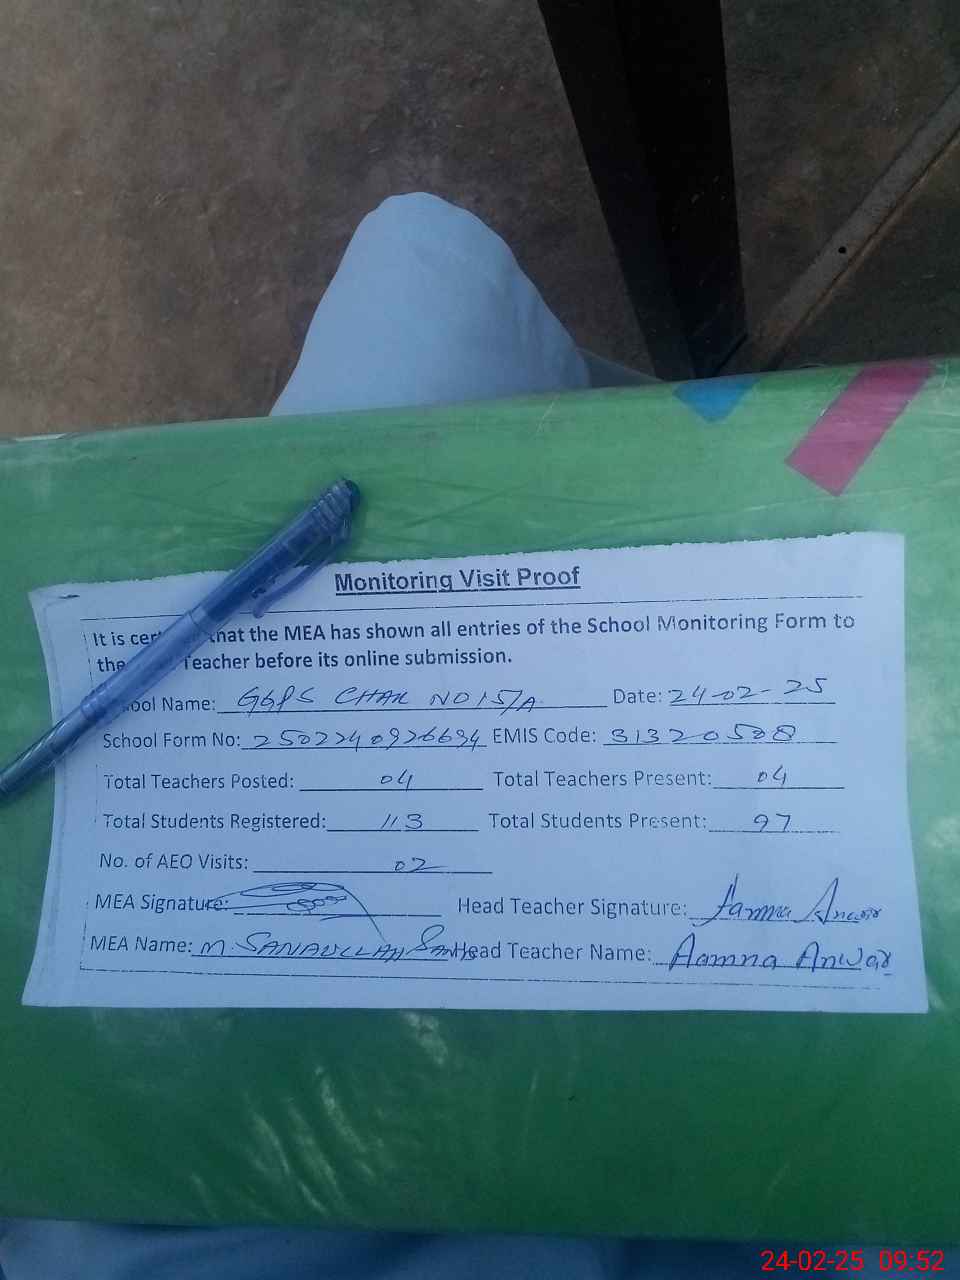 Monitoring Visit Proof
It is that the MEA has shown all entries of the School Monitoring Form to
the Teacher before its online submission.
ool Name: GGPS CHAK NO 15/A Date: 24-02-25
School Form No: 2502240926694 EMIS Code: 31320508
Total Teachers Posted: 04 Total Teachers Present: 04
Total Students Registered: 113 Total Students Present: 97
No. of AEO Visits: 02
MEA Signature: Head Teacher Signature: Aamna Anwar
MEA Name: M. SANAULLAH Head Teacher Name: Aamna Anwar
24-02-25 09:52